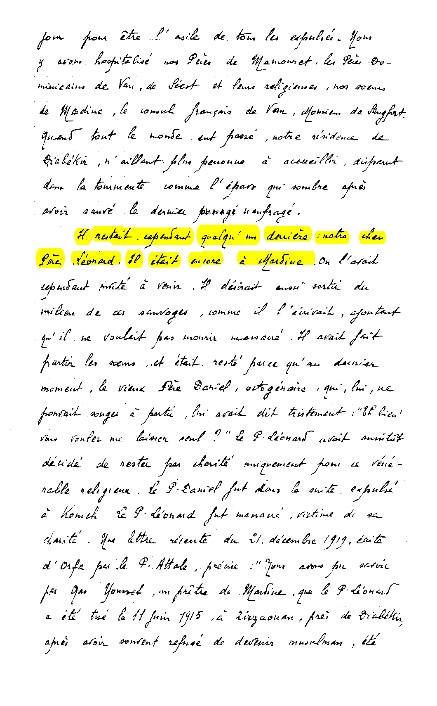 jour pour être l'asile de tous les expulsés. Nous
y avons hospitalisé nos Pères de Mamouret, les Pères Do-
minicains de Van, de Séert et leurs religieuses, nos sœurs
de Mardine, le consul français de Van, Monsieur de
quand tout le monde eut passé, notre résidence de
Diabékir, n'aillant plus personne à accueillir, disparut
dans la tourmente comme l'épave qui sombre après
avoir sauvé le dernier passager naufragé.
Il restait cependant quelqu'un derrière : notre cher
Père Léonard. Il était encore à Mardine. On l'avait
cependant invité à venir. Il désirait aussi sortir du
milieu de ces sauvages, comme il l'écrivait, ajoutant
qu'il ne voulait pas mourir massacré. Il avait fait
partir les sœurs, et était resté parce qu'au dernier
moment, le vieux Père Daniel, octogénaire, qui, lui, ne
pouvait songer à partir, lui avait dit tristement : "Eh bien!
vous voulez me laisser seul ?" Le P. Léonard avait aussitôt
décidé de rester par charité uniquement pour ce véné-
rable religieux. Le P. Daniel fut dans la suite expulsé
à Konieh. Le P. Léonard fut massacré, victime de sa
charité. Une lettre récente du 21 décembre 1919, écrite
d'Orfa par le P. Attale, précise : "Nous avons pu savoir
par Gas Youssef, un prêtre de Mardine, que le P. Léonard
a été tué le 11 Juin 1915, à Zirzaouan, près de Diabékir,
après avoir souvent refusé de devenir musulman, été